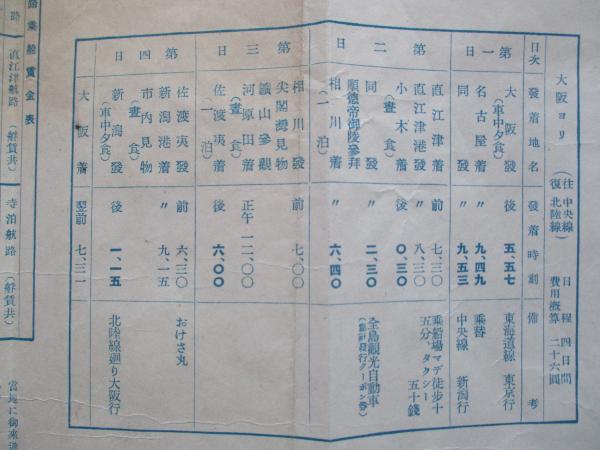 大阪ヨリ (往 中央線 復 北陸線) 日程 四日間 費用概算 二十六圓
日次 發着地名 發着時刻 備考
第一日 大阪發 後 五、五七 東海道線 東京行
(車中夕食)
名古屋着 〃 九、四九 乗替
同發 〃 九、五三 中央線 新潟行
第二日 直江津着 前 七、三〇 乗船場マデ徒歩十五分、タクシー五十錢
直江津港發 〃 八、三〇
小木着 後 〇、三〇
(晝食)
同發 〃 二、三〇 全島觀光自動車
順德帝御陵參拜
相川着 〃 六、四〇
(一泊)
第三日 相川發 前 七、〇〇
尖閣灣見物
鑛山參觀
河原田着 正午 一二、〇〇
(晝食)
佐渡夷着 後 六、〇〇
(一泊)
第四日 佐渡夷發 前 六、三〇 おけさ丸
新潟港着 〃 九、一五
市內見物
(晝食)
新潟發 後 一、一五 北陸線廻り大阪行
(車中夕食)
大阪着 翌前 七、三一
路乗船賃金表
路 直江津航路 (艀賃共) 寺泊航路 (艀賃共)
當地に御来遊